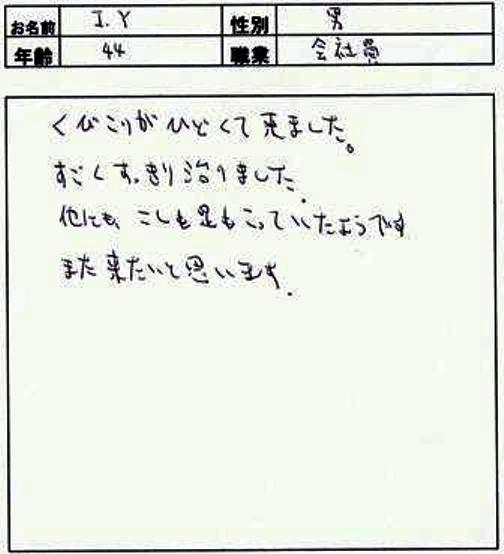 お名前 I.Y 性別 男
年齢 44 職業 会社員
くびこりがひどくて来ました。
すごくすっきり治りました.
他にも、こしも足もこっていたようです
また来たいと思います.